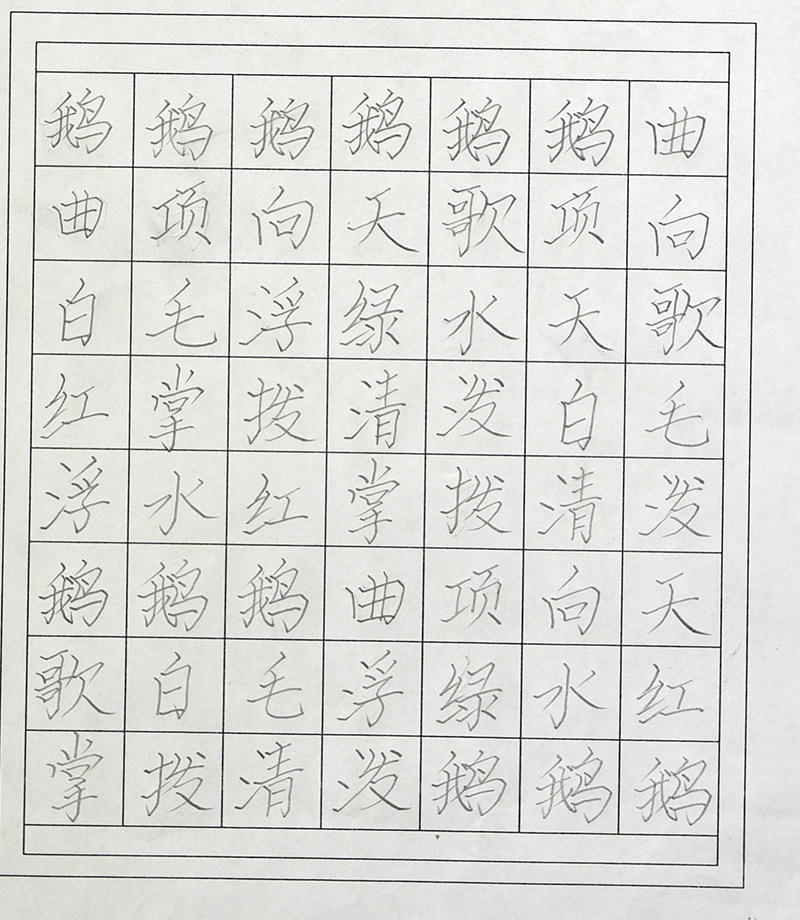 鹅鹅鹅鹅鹅鹅曲
曲项向天歌项向
白毛浮绿水天歌
红掌拨清泼白毛
浮水红掌拨清泼
鹅鹅鹅曲项向天
歌白毛浮绿水红
掌拨清泼鹅鹅鹅